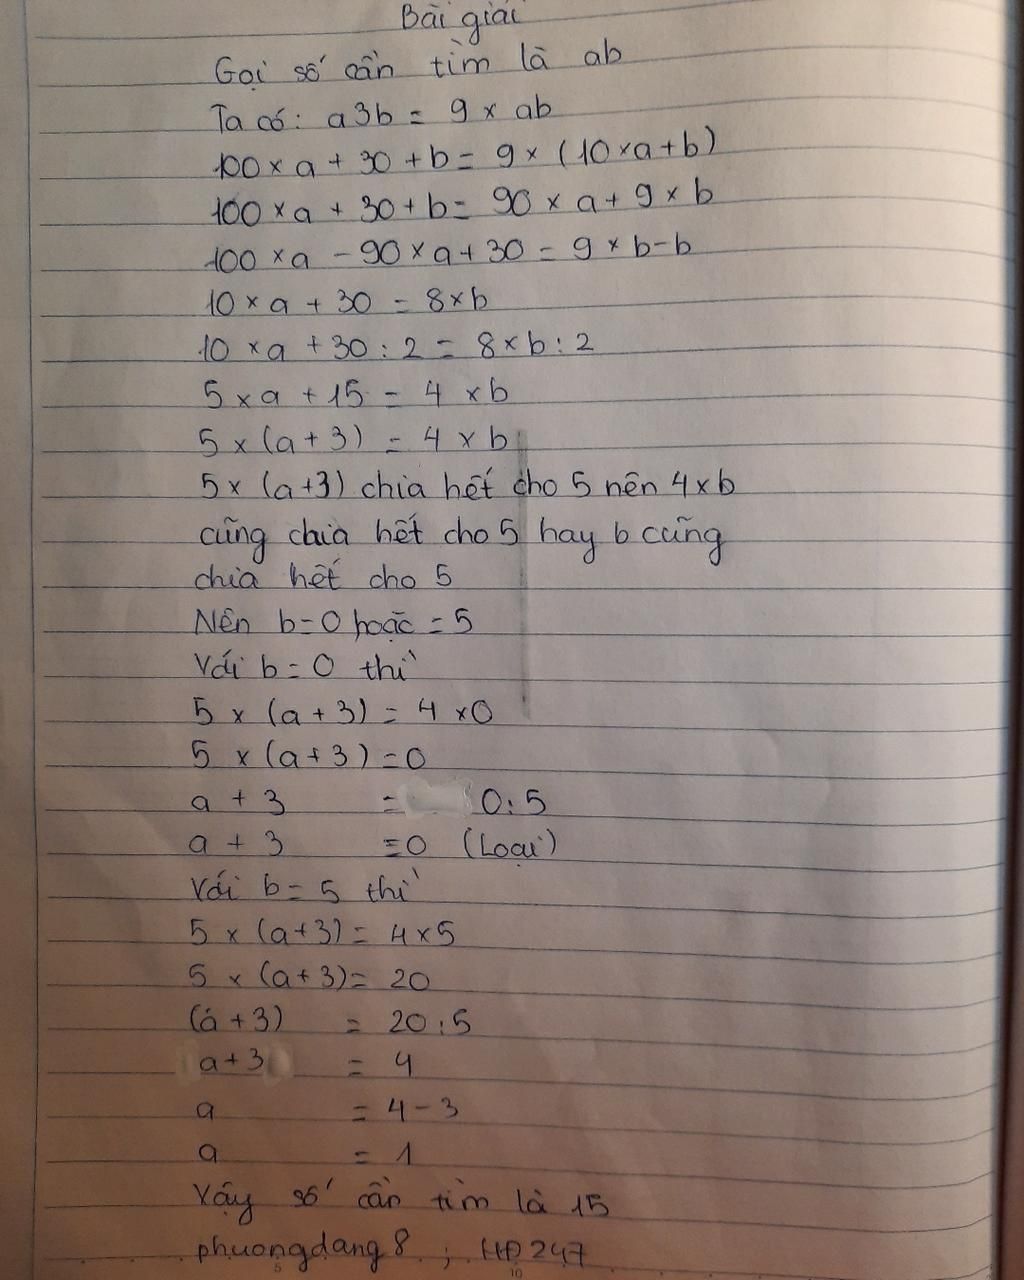 Bài giải
Gọi số cần tìm là ab
Ta có: a3b = 9 x ab
100 x a + 30 + b = 9 x (10 x a + b)
100 x a + 30 + b = 90 x a + 9 x b
100 x a - 90 x a + 30 = 9 x b - b
10 x a + 30 = 8 x b
10 x a + 30 : 2 = 8 x b : 2
5 x a + 15 = 4 x b
5 x (a + 3) = 4 x b
5 x (a + 3) chia hết cho 5 nên 4 x b
cũng chia hết cho 5 hay b cũng
chia hết cho 5
Nên b = 0 hoặc = 5
Với b = 0 thì
5 x (a + 3) = 4 x 0
5 x (a + 3) = 0
a + 3 = 0 : 5
a + 3 = 0 (Loại)
Với b = 5 thì
5 x (a + 3) = 4 x 5
5 x (a + 3) = 20
(a + 3) = 20 : 5
a + 3 = 4
a = 4 - 3
a = 1
Vậy số cần tìm là 15
phuongdang8 ; HĐ247